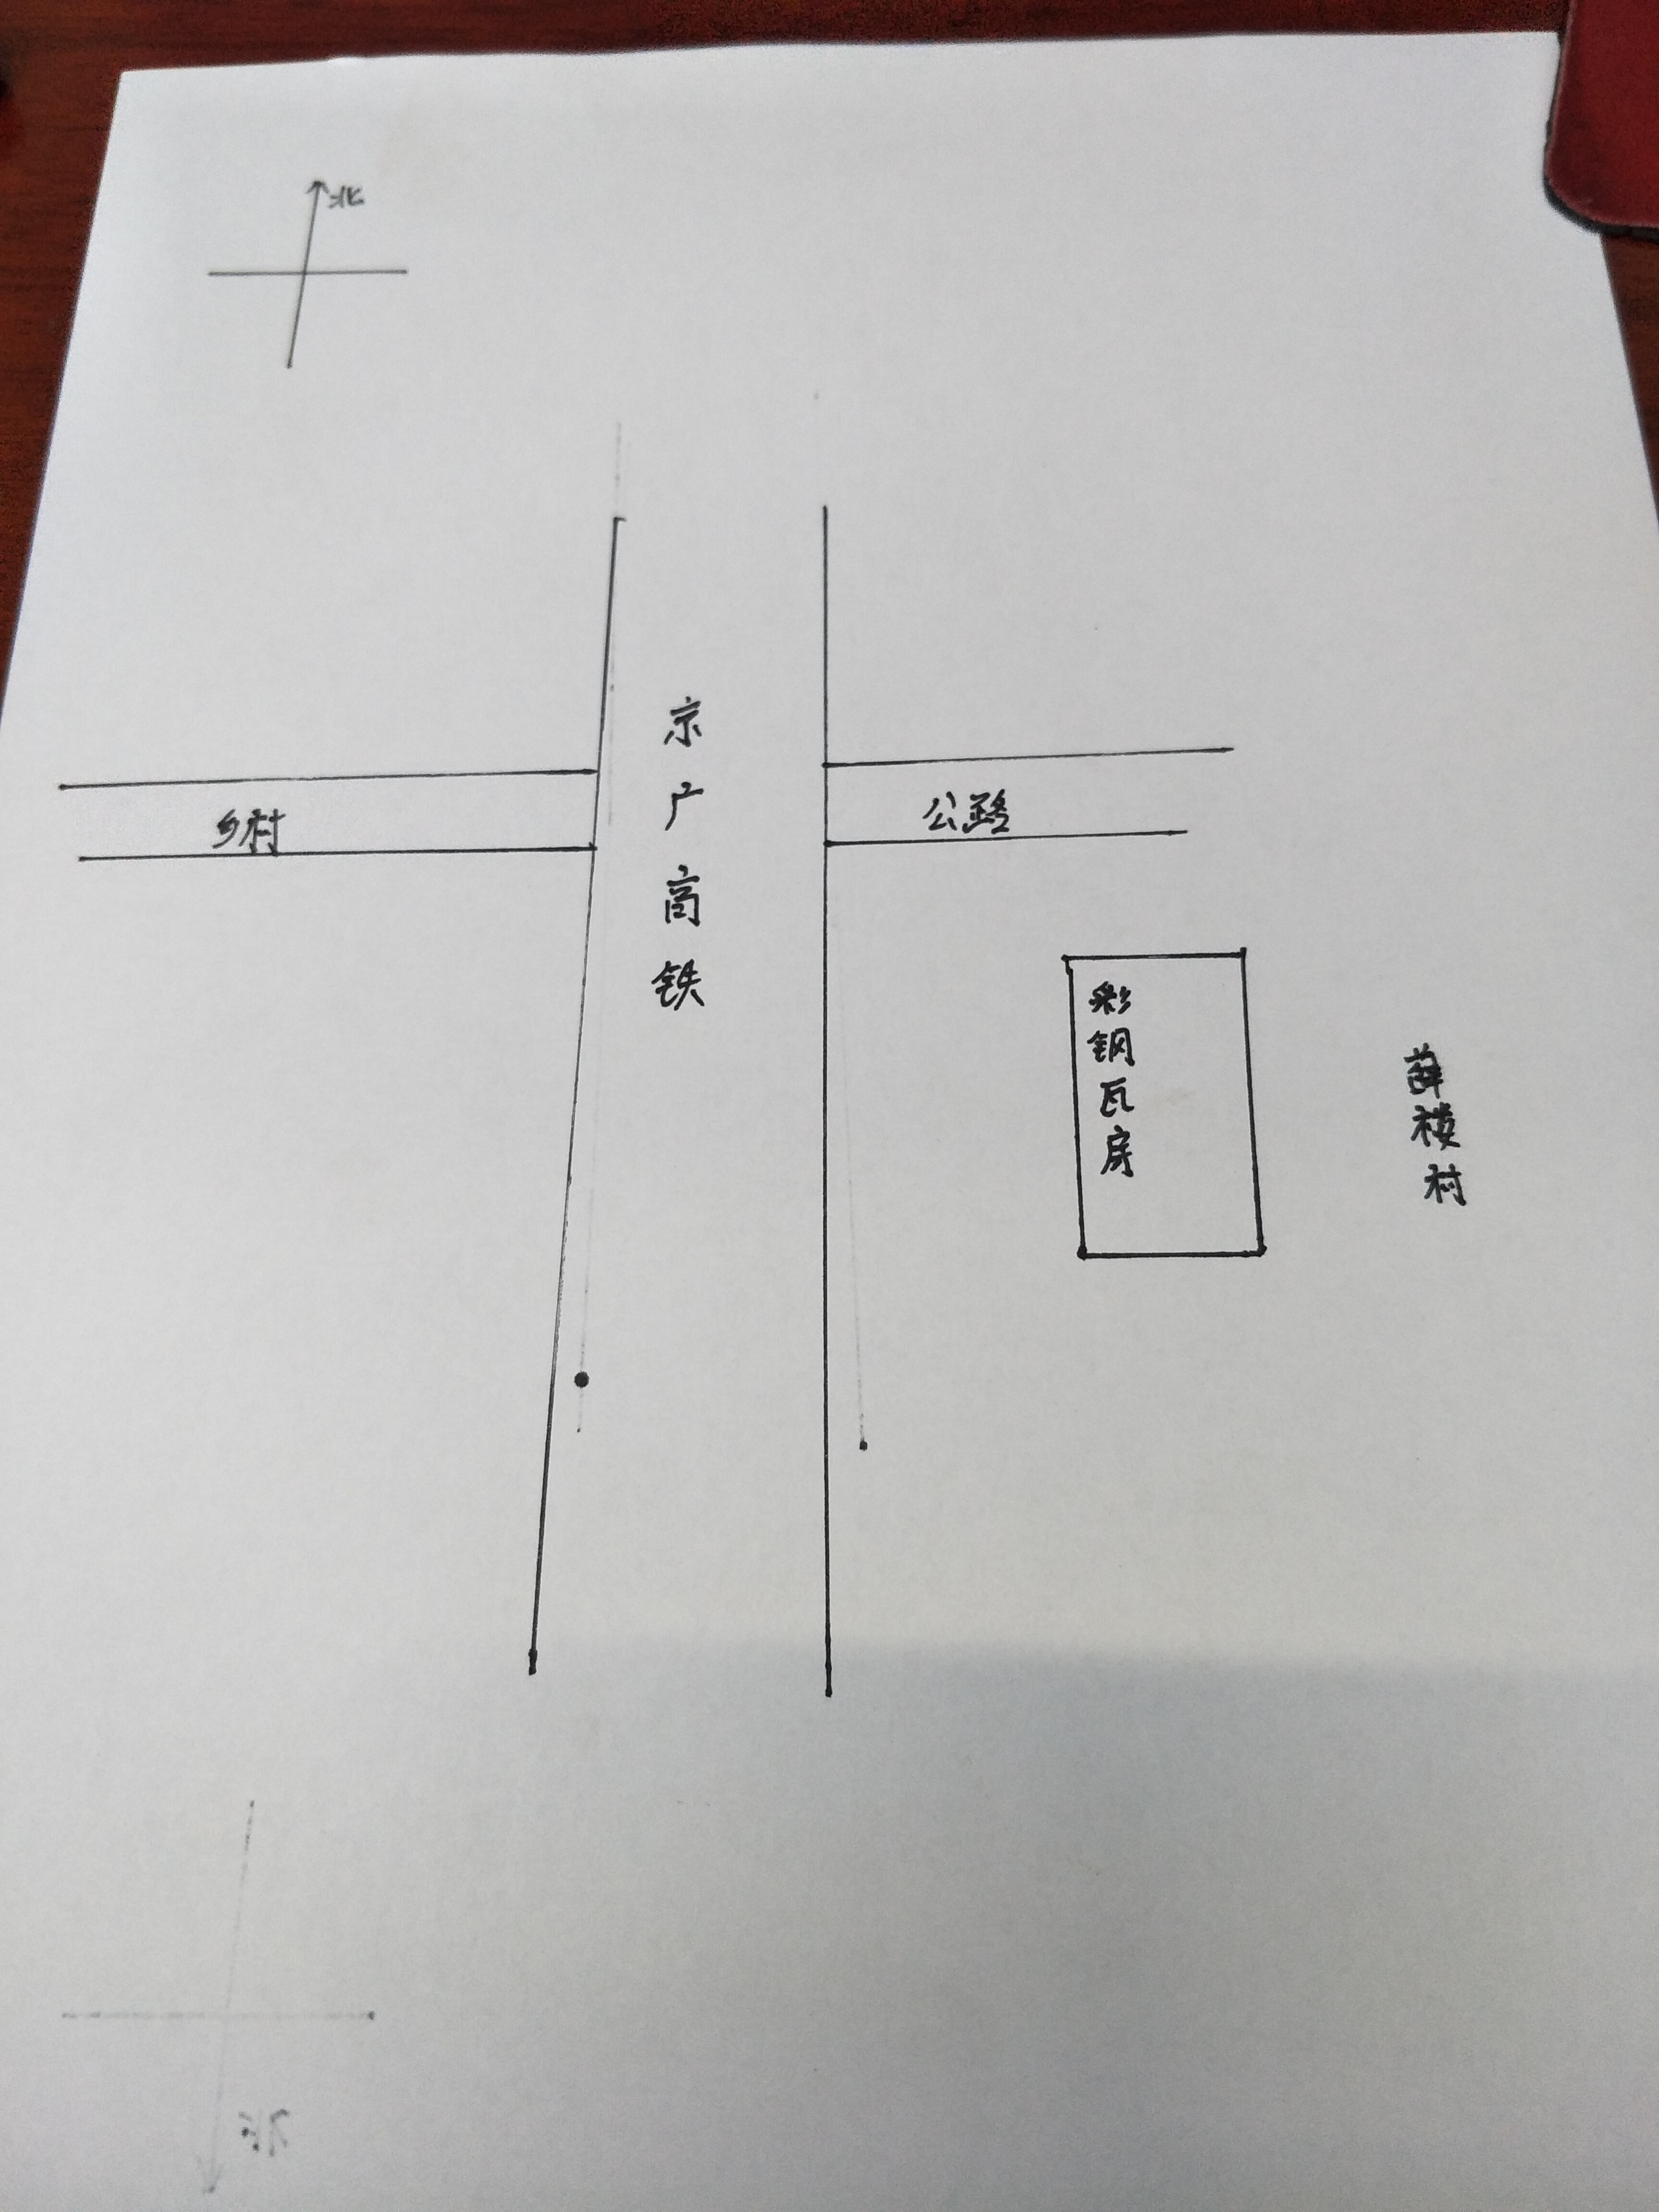 北
京广高铁
乡村
公路
彩钢瓦房
薛楼村
北